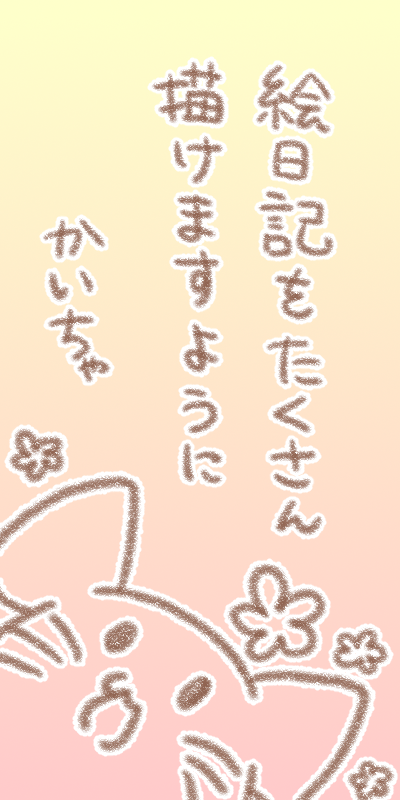 絵日記をたくさん
描けますように
かいちゃ